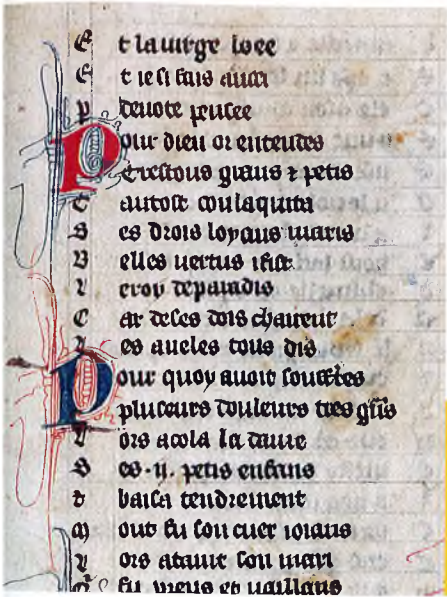 E t la uirge loee
E t ie si fais ausi
P deuote pensee
Pour dieu or entendes
Trestous grans ⁊ petis
T antost con laquita
S es drois loyaus maris
B elles uertus ifist
L e roy de paradis
C ar deles dois chaurent
L es aueles tous dis
Pour quoy auoit souffertes
plusieurs douleurs tres gñs
L ors acola la dame
S es .ij. petis enfans
⁊ baisa tendrement
M out fu son cuer ioians
L ors atant son mari
Q̃ fu preus et uaillans